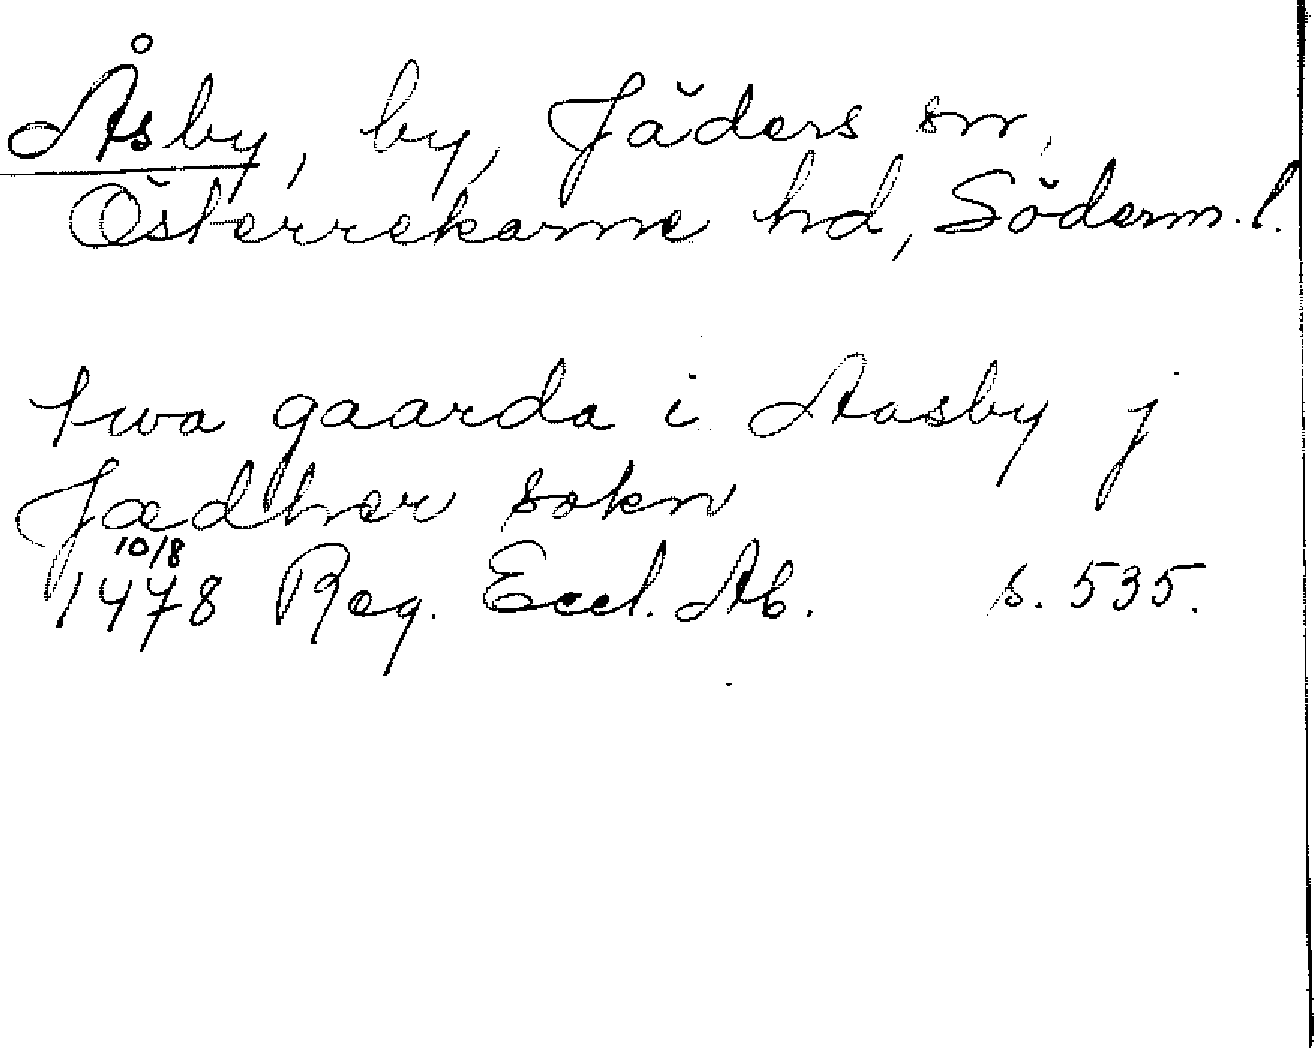 Åsby, by, Jäders sn,
Österrekarne hd, Söderm. l.
twa gaarda i Aasby j
Jædher sokn
10/8
1478 Reg. Eccl. Ab. s. 535.